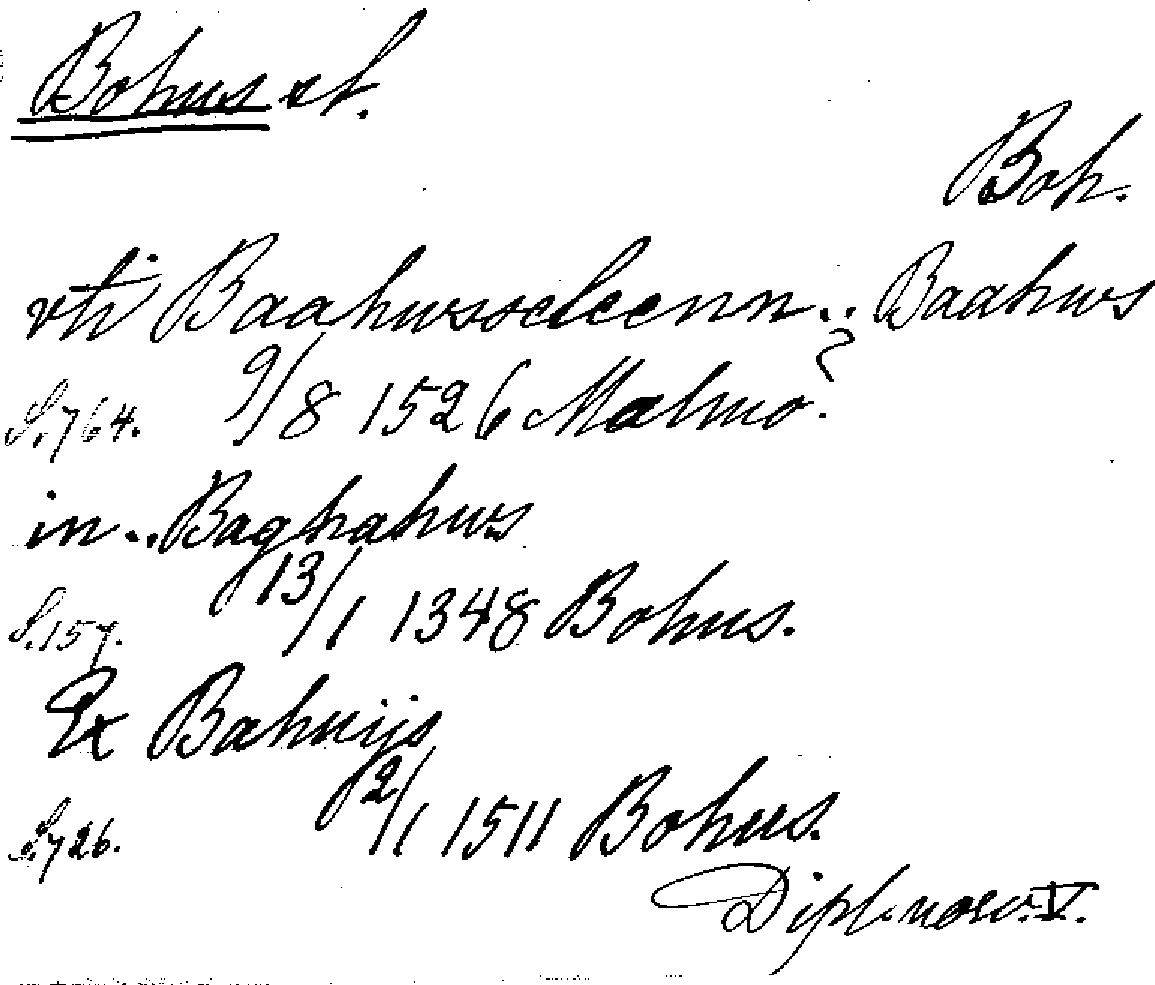 Bohus sl.
Boh.
vti Baahwssleenn .. Baahws
S. 764. 9/8 1526 Malmö?
in .. Baghahws
S. 157. 13/1 1348 Bohus.
Ex Bahuijs
S. 726. 2/1 1511 Bohus.
Dipl. norv. V.